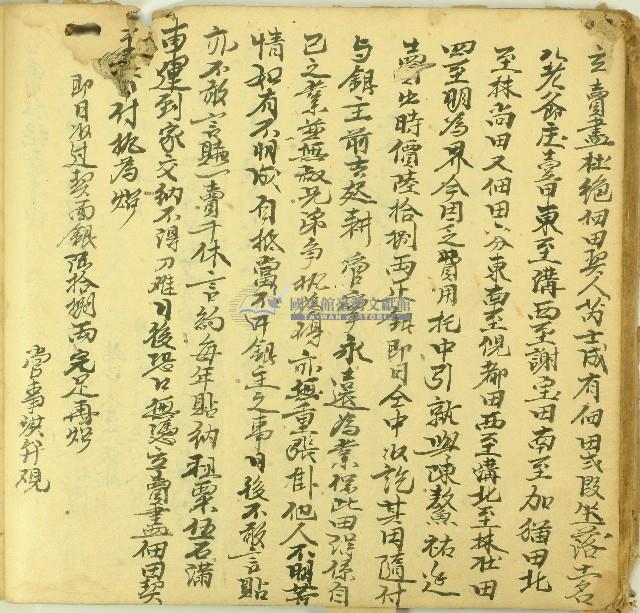 立賣盡杜絕佃田契人黃士成有佃田弍段坐落土名
八老爺庄壹田東至溝西至謝宝田南至加猫田北
至林尚田又佃田一分東南至倪都田西至溝北至林壯田
四至明為界今因乏費用托中引就與陳鰲祐邊
賣出時價陸拾捌兩正銀即日仝中收訖其田隨付
与銀主前去起耕管 永遠為業保此田段係自
己之業並無叔兄弟争執 亦無重張掛他人不明等
情如有不明成自抵當不干銀主之事日後不敢言貼
亦不敢言贖一賣千休言約每年貼納租粟伍石滿
車運到家交納不得刁难日後恐口無憑立賣盡佃田契
付执為炤
即日收过契面銀陸拾捌兩完足再炤
當事
國史館臺灣文獻館
TAIWAN HISTORICA